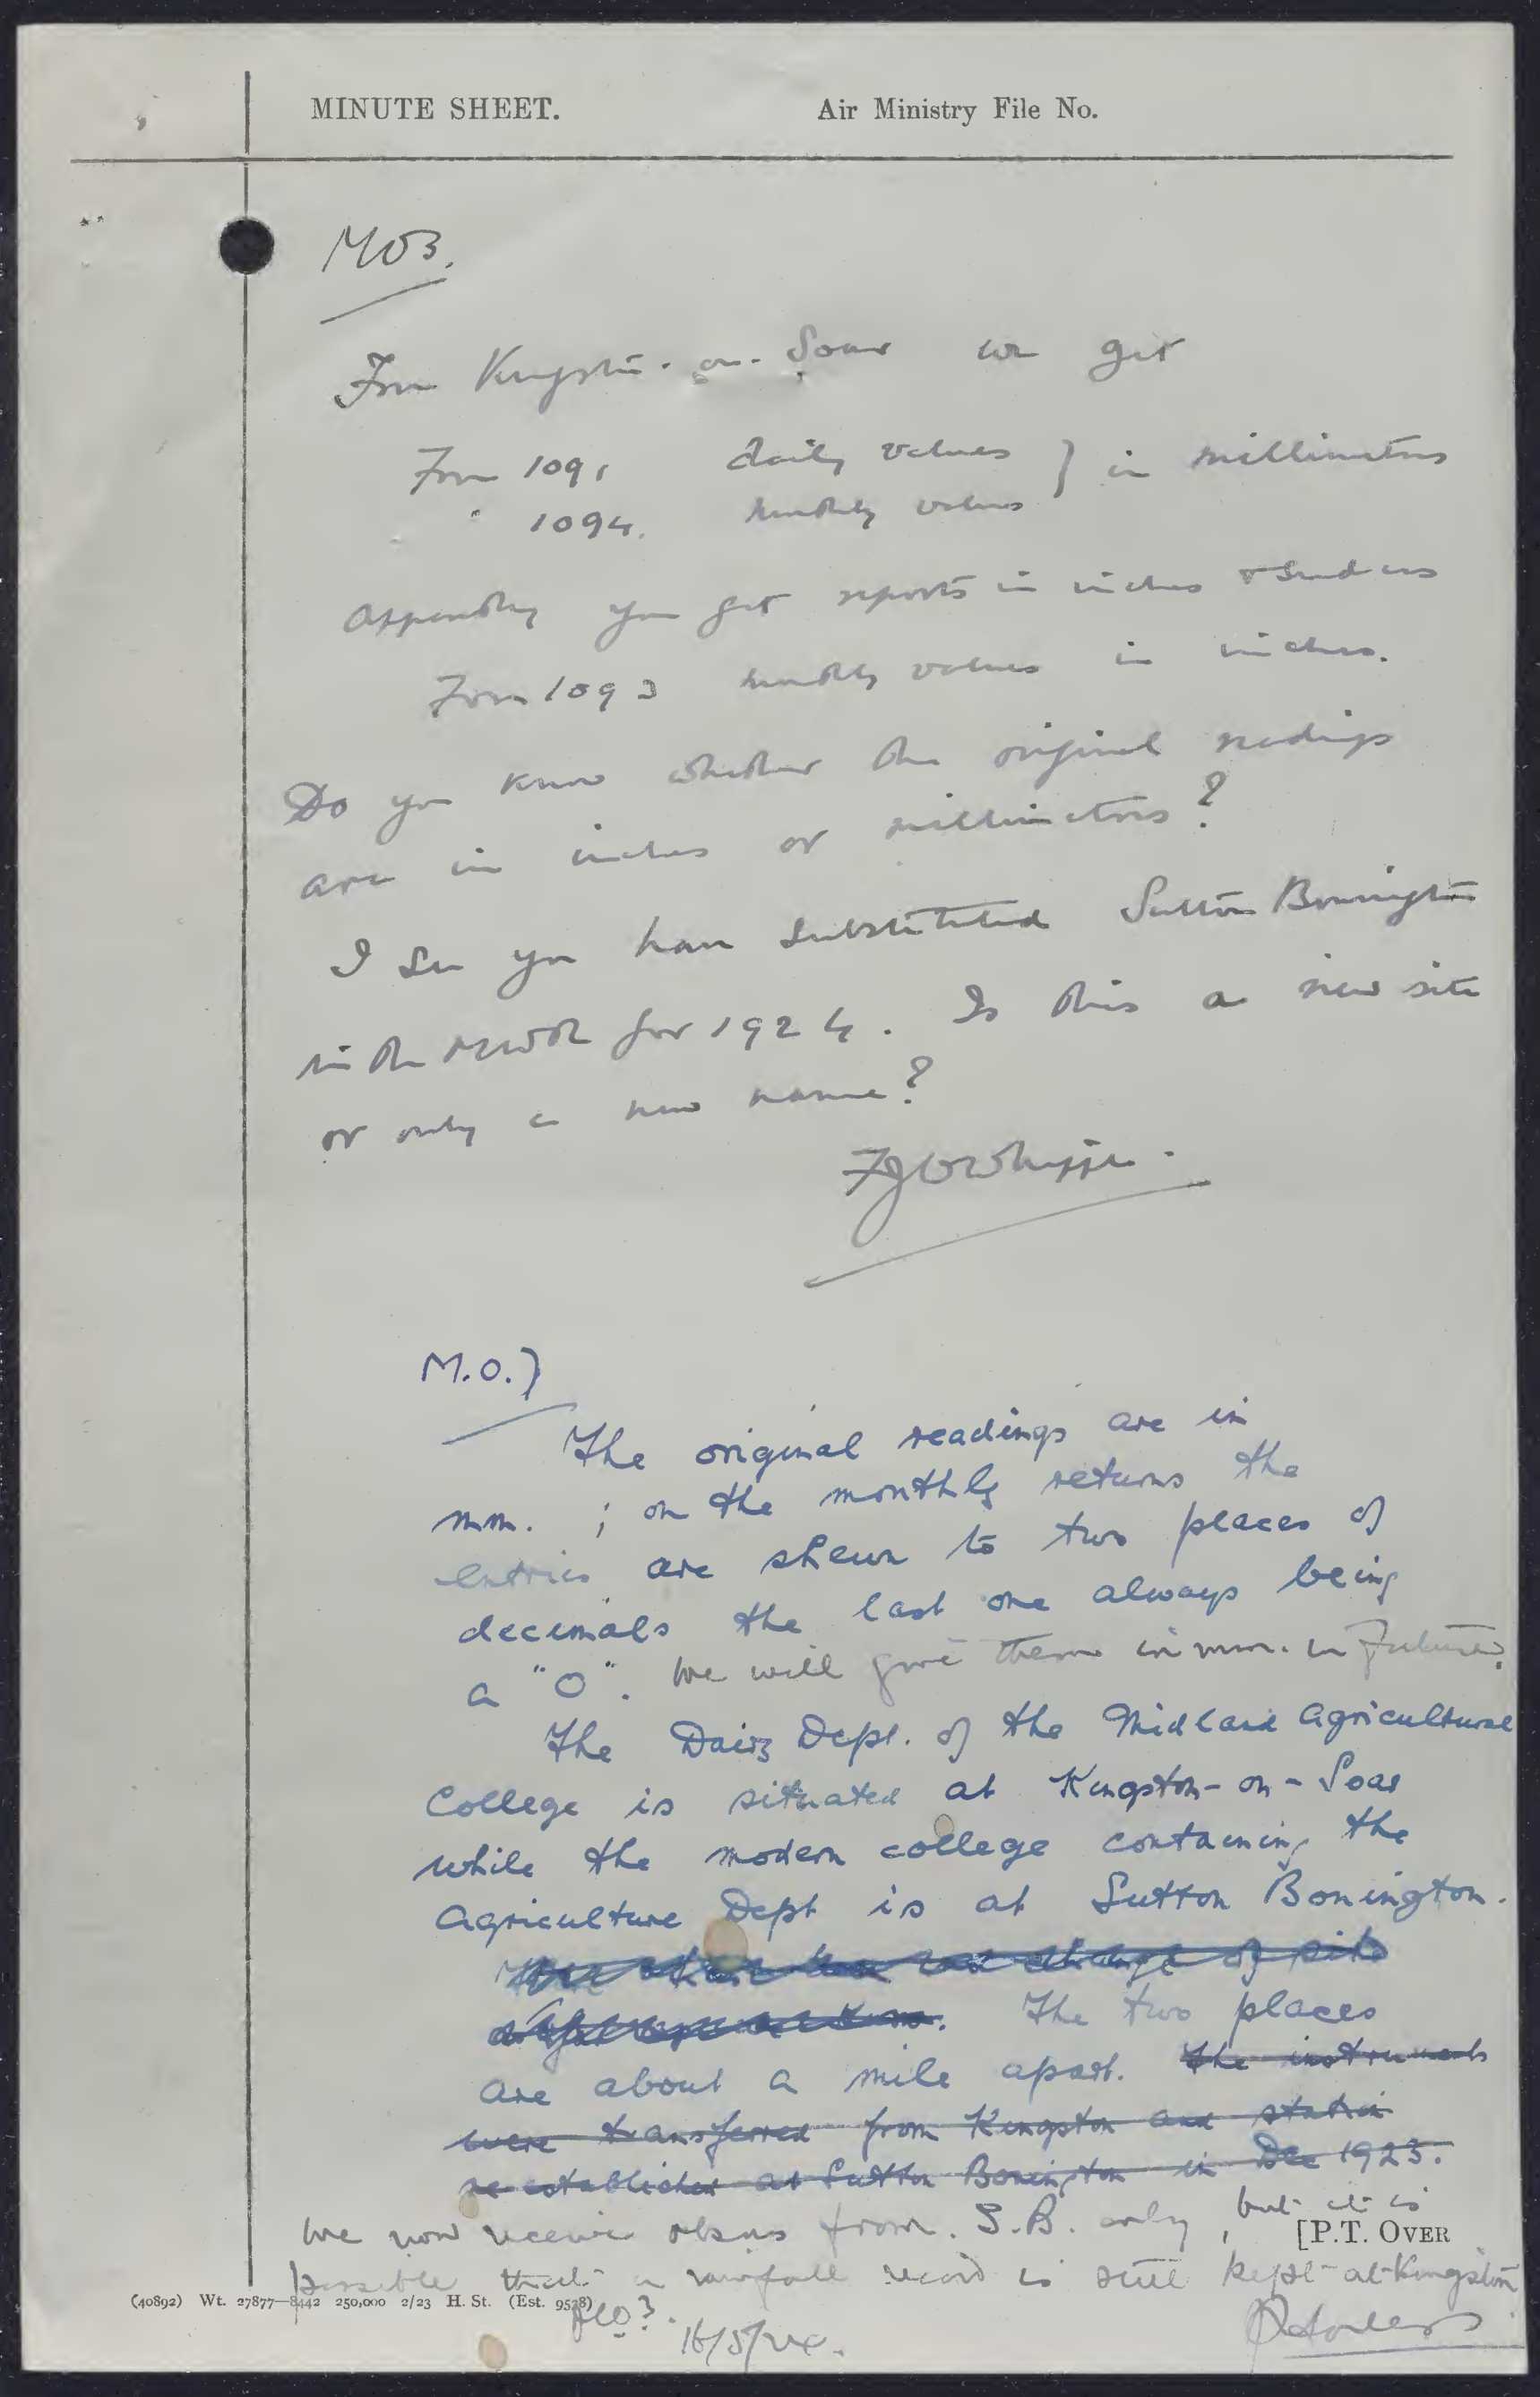 MINUTE SHEET. Air Ministry File No.
MO3.
From Kingston-on-Soar we get
Form 1091 daily values } in millimetres
" 1094. monthly values
Apparently you get reports in inches & send us
Form 1093 monthly values in inches.
Do you know whether the original readings
are in inches or millimetres?
I see you have substituted Sutton Bonnington
in the MWR for 1924. Is this a new site
or only a new name?
FJWWhipple.
M.O.7
The original readings are in
mm. ; on the monthly returns the
entries are shewn to two places of
decimals the last one always being
a "0". We will give them in mm. in future.
The Dairy Dept. of the Midland Agricultural
College is situated at Kingston-on-Soar
while the modern college containing the
Agriculture Dept is at Sutton Bonington.
change of site
The two places
are about a mile apart. The instruments
were transferred from Kingston and station
re-established at Sutton Bonington in Dec 1923.
We now receive obsns from S.B. only, but it is
[P.T. OVER
possible that a rainfall record is still kept at Kingston
(40892) Wt. 27877—8442 250,000 2/23 H. St. (Est. 9528)
MO3.
16/5/24.